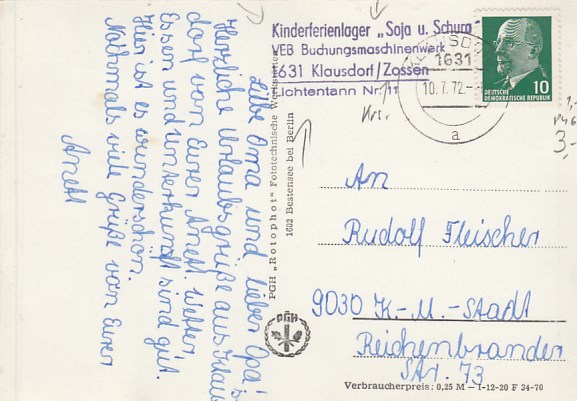 Liebe Oma und lieber Opa!
Herzliche Urlaubsgrüße aus Klaus
dorf von Eurer Anett. Wetter,
Essen und Unterkunft sind gut.
Hier ist es wunderschön.
Nochmals viele Grüße von Eurer
Anett
PGH „Rotophot“ Fototechnische Werkstätten
1602 Bestensee bei Berlin
Kinderferienlager „Soja u. Schura“
VEB Buchungsmaschinenwerk
1631 Klausdorf/Zossen
Lichtentann Nr. 11
1631
10.7.72.-
a
DEUTSCHE
DEMOKRATISCHE REPUBLIK
10
3,-
An
Rudolf Fleischer
9030 K.-M.-Stadt
Reichenbrander
Str. 73
PGH
Verbraucherpreis: 0,25 M – 1-12-20 F 34-70